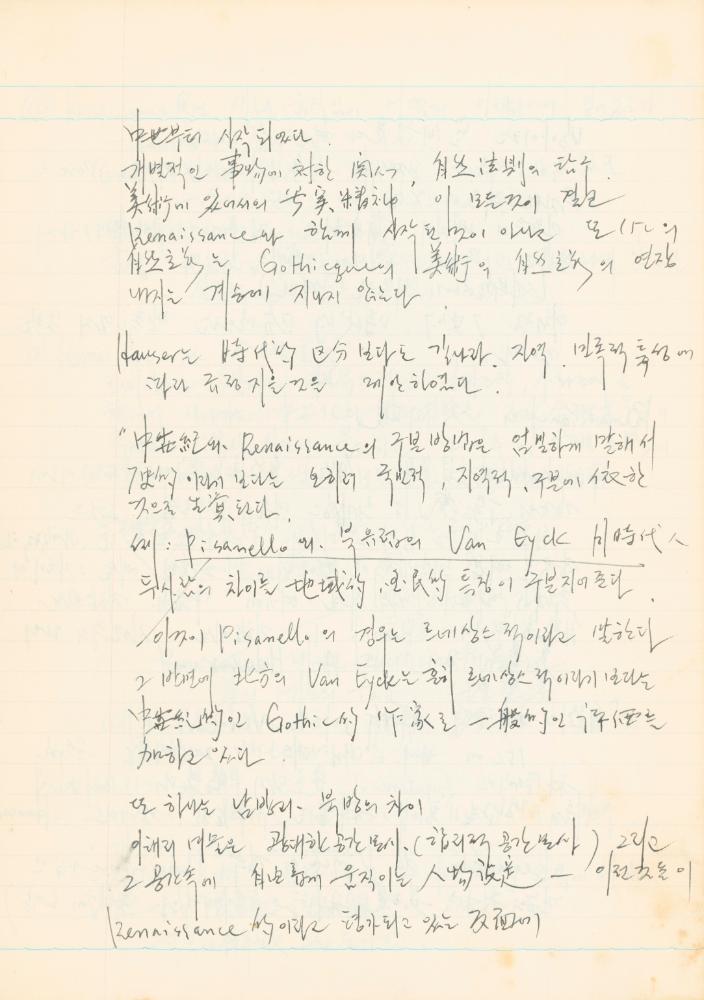 中世부터 시작되었다.
개별적인 事物에 対한 関心, 自然法則의 탐구.
美術에 있어서의 写実精神 이 모든것이 결코
Renaissance와 함께 시작된것이 아니고 또 15C의
自然主義는 Gothique의 美術의 自然主義의 연장
내지는 계승에 지나지 않는다.
Hauser는 時代的 区分보다도 각나라. 지역. 민족적 특성에
따라 규정지을것을 제안하였다.
"中世紀와 Renaissance의 구분방법은 엄밀하게 말해서
歴史的이라기 보다는 오히려 국민적, 지역적, 구분에 依한
것으로 生覚된다.
例: Pisanello와 북유럽의 Van Eyck 同時代人
두사람의 차이를 地域的, 国民的 특징이 구분지어준다.
이것이 Pisanello의 경우는 르네상스적이라고 말한다
그 반면에 北方의 Van Eyck는 흔히 르네상스적이라기 보다는
中世紀的인 Gothic的 作家로 一般的인 評価를
加하고 있다.
또 하나는 남방과 북방의 차이
이태리 미술은 광대한 공간묘사. (합리적 공간묘사) 그리고
그 공간속에 自由롭게 움직이는 人物設定 — 이런것들이
Renaissance的이라고 평가되고 있는 反面에